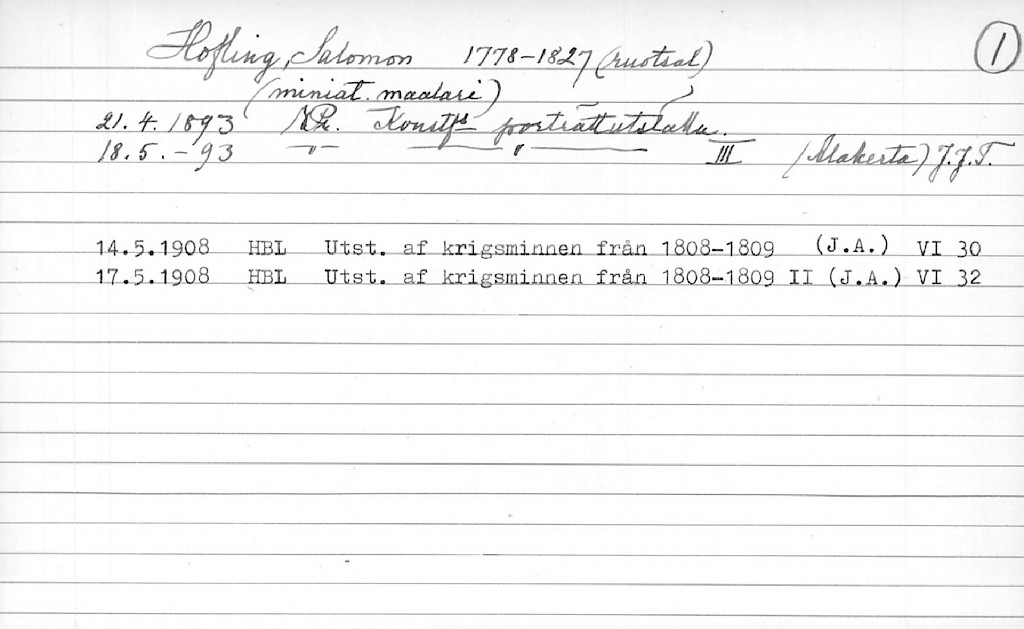 Hofling, Salomon 1778-1827 (ruotsal) 1
(miniat. maalari)
21.4.1893 N.Pr. Konstfs porträttutställn.
18.5.-93 -"- -"- III (Alakerta) J.J.T.
14.5.1908 HBL Utst. af krigsminnen från 1808-1809 (J.A.) VI 30
17.5.1908 HBL Utst. af krigsminnen från 1808-1809 II (J.A.) VI 32